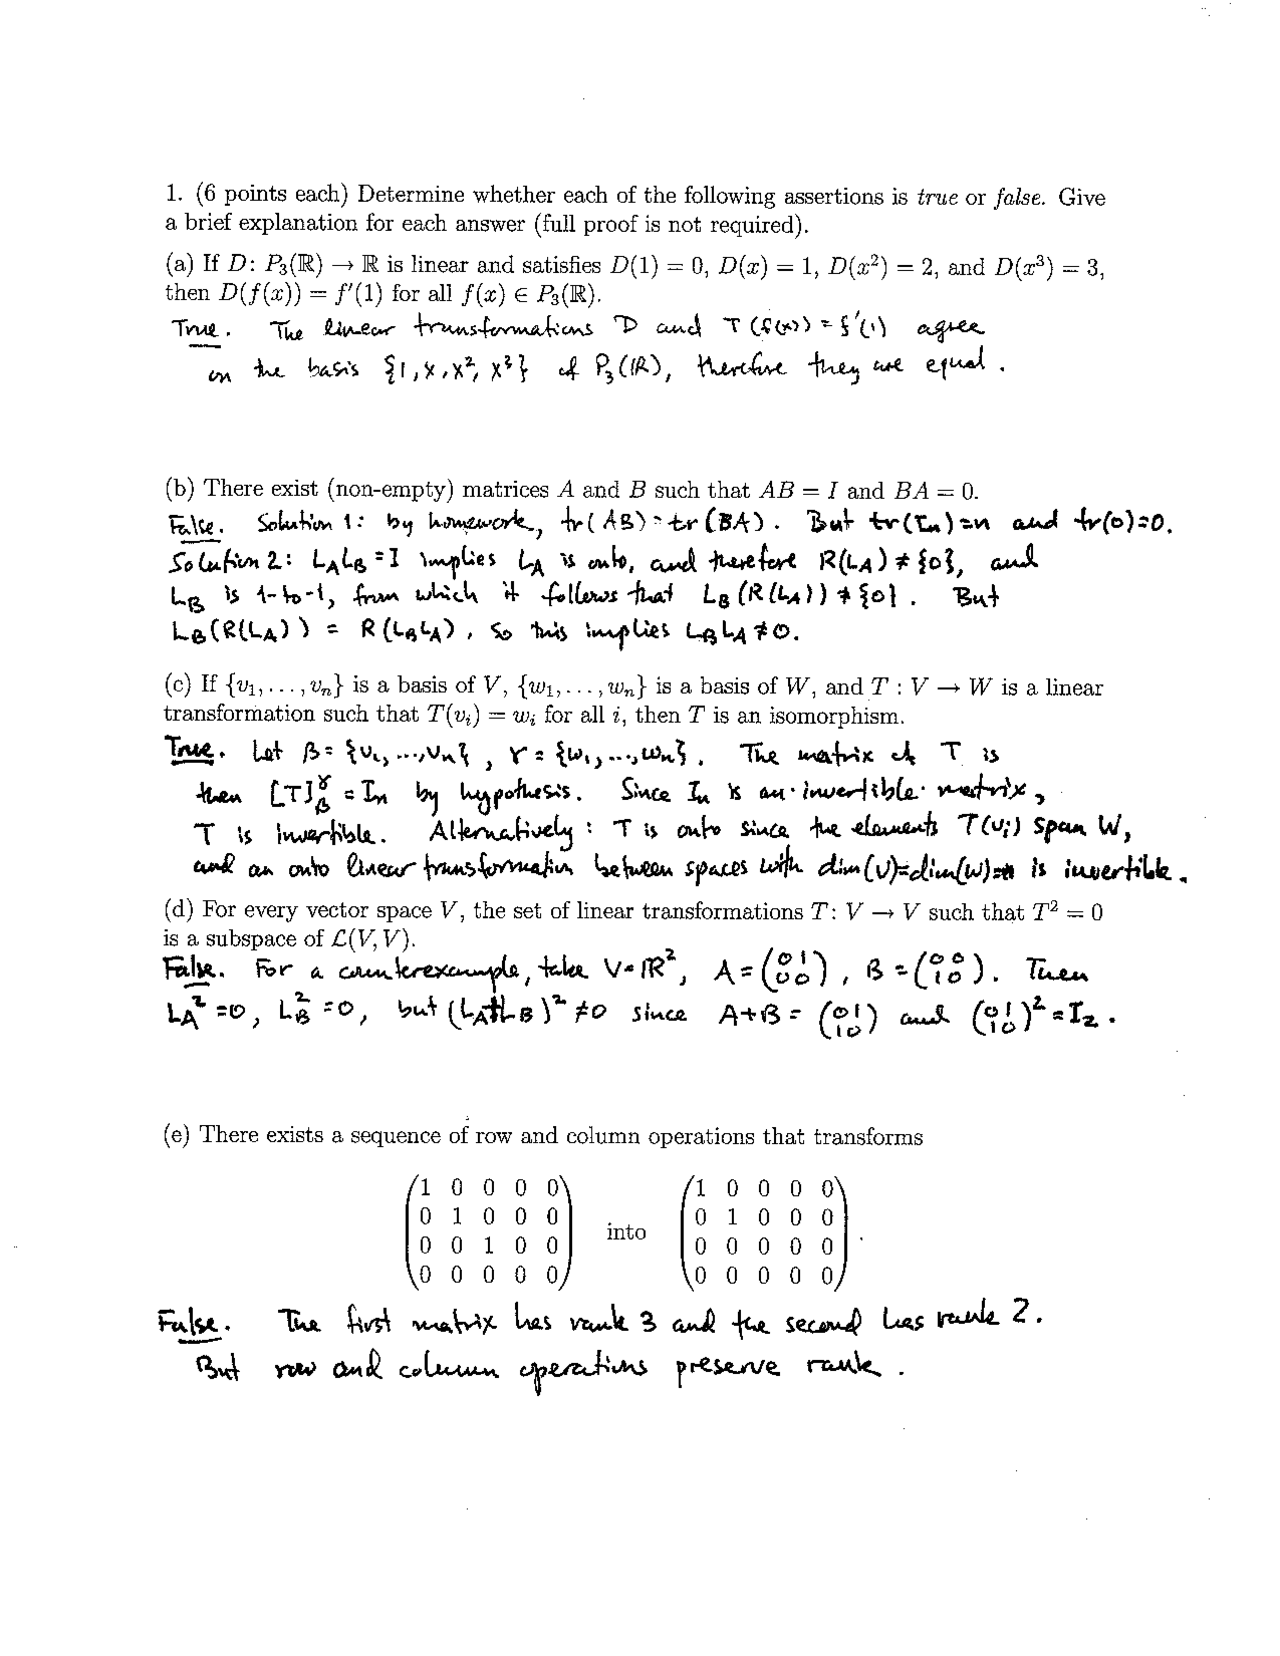 1. (6 points each) Determine whether each of the following assertions is true or false. Give
a brief explanation for each answer (full proof is not required).
(a) If D: P₃(ℝ) → ℝ is linear and satisfies D(1) = 0, D(x) = 1, D(x²) = 2, and D(x³) = 3,
then D(f(x)) = f′(1) for all f(x) ∈ P₃(ℝ).
True. The linear transformations D and T(f(x)) = f′(1) agree
on the basis {1, x, x², x³} of P₃(ℝ), therefore they are equal.
(b) There exist (non-empty) matrices A and B such that AB = I and BA = 0.
False. Solution 1: by homework, tr(AB) = tr(BA). But tr(Iₙ)=n and tr(0)=0.
Solution 2: L_A L_B = I implies L_A is onto, and therefore R(L_A) ≠ {0}, and
L_B is 1-to-1, from which it follows that L_B(R(L_A)) ≠ {0}. But
L_B(R(L_A)) = R(L_B L_A), so this implies L_B L_A ≠ 0.
(c) If {v₁, . . . , vₙ} is a basis of V, {w₁, . . . , wₙ} is a basis of W, and T : V → W is a linear
transformation such that T(vᵢ) = wᵢ for all i, then T is an isomorphism.
True. Let β = {v₁, ..., vₙ}, γ = {w₁, ..., wₙ}. The matrix of T is
then [T]_β^γ = Iₙ by hypothesis. Since Iₙ is an invertible matrix,
T is invertible. Alternatively: T is onto since the elements T(vᵢ) span W,
and an onto linear transformation between spaces with dim(V)=dim(W)=n is invertible.
(d) For every vector space V, the set of linear transformations T: V → V such that T² = 0
is a subspace of ℒ(V, V).
False. For a counterexample, take V=ℝ², A = (0 1; 0 0), B = (0 0; 1 0). Then
L_A² = 0, L_B² = 0, but (L_A+L_B)² ≠ 0 since A+B = (0 1; 1 0) and (0 1; 1 0)² = I₂.
(e) There exists a sequence of row and column operations that transforms
1 0 0 0 0 1 0 0 0 0
0 1 0 0 0 into 0 1 0 0 0
0 0 1 0 0 0 0 0 0 0 .
0 0 0 0 0 0 0 0 0 0
False. The first matrix has rank 3 and the second has rank 2.
But row and column operations preserve rank.